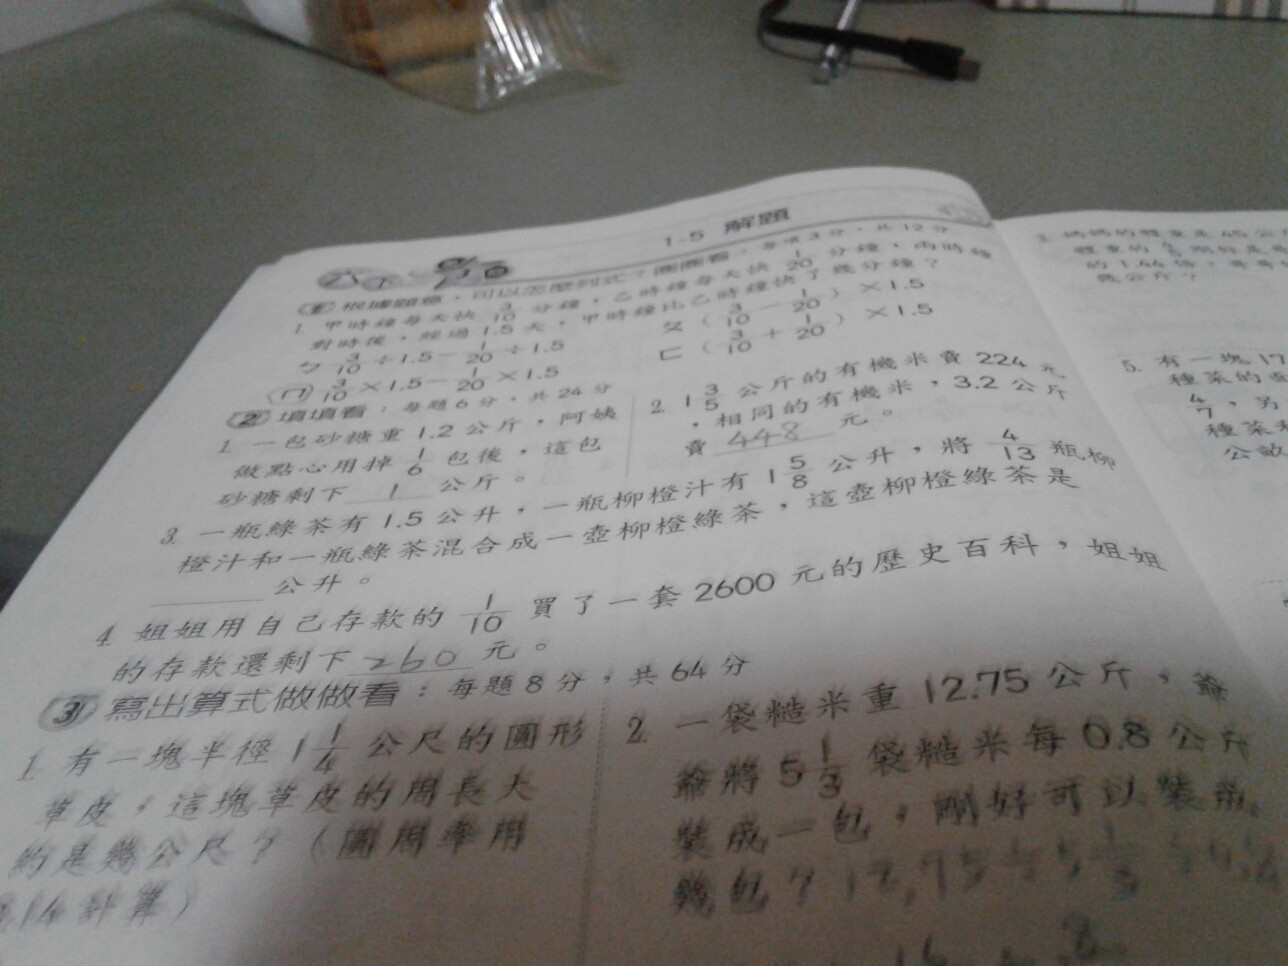 1-5 解題
六下
1 根據題意,可以怎麼列式?圈圈看:每項3分,共12分
1. 甲時鐘每天快 3/10 分鐘,乙時鐘每天快 1/20 分鐘,兩時鐘
對時後,經過1.5天,甲時鐘比乙時鐘快了幾分鐘?
ㄅ 3/10 ÷1.5− 1/20 ÷1.5
ㄆ ( 3/10 − 1/20 ) ×1.5
ㄇ 3/10 ×1.5− 1/20 ×1.5
ㄈ ( 3/10 + 1/20 ) ×1.5
2 填填看:每題6分,共24分
1. 一包砂糖重1.2公斤,阿姨
做點心用掉 1/6 包後,這包
砂糖剩下 1 公斤。
2. 1 3/5 公斤的有機米賣224元
,相同的有機米,3.2公斤
賣 448 元。
3. 一瓶綠茶有1.5公升,一瓶柳橙汁有1 5/8 公升,將 4/13 瓶柳
橙汁和一瓶綠茶混合成一壺柳橙綠茶,這壺柳橙綠茶是
公升。
4. 姐姐用自己存款的 1/10 買了一套2600元的歷史百科,姐姐
的存款還剩下 260 元。
3 寫出算式做做看:每題8分,共64分
1. 有一塊半徑1 1/4 公尺的圓形
草皮,這塊草皮的周長大
約是幾公尺?(圓周率用
3.14計算)
2. 一袋糙米重12.75公斤,爺
爺將5 1/3 袋糙米每0.8公斤
裝成一包,剛好可以裝成
幾包?
5. 有一塊17
種菜的面
4/7,另
種菜和
公畝